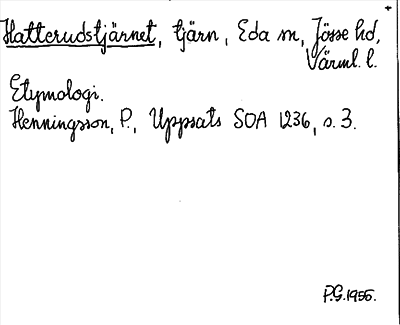 Hatterudstjärnet, tjärn, Eda sn, Jösse hd,
Värml. l.
Etymologi.
Henningsson, P., Uppsats SOA 1236, s. 3.
P.G. 1955.